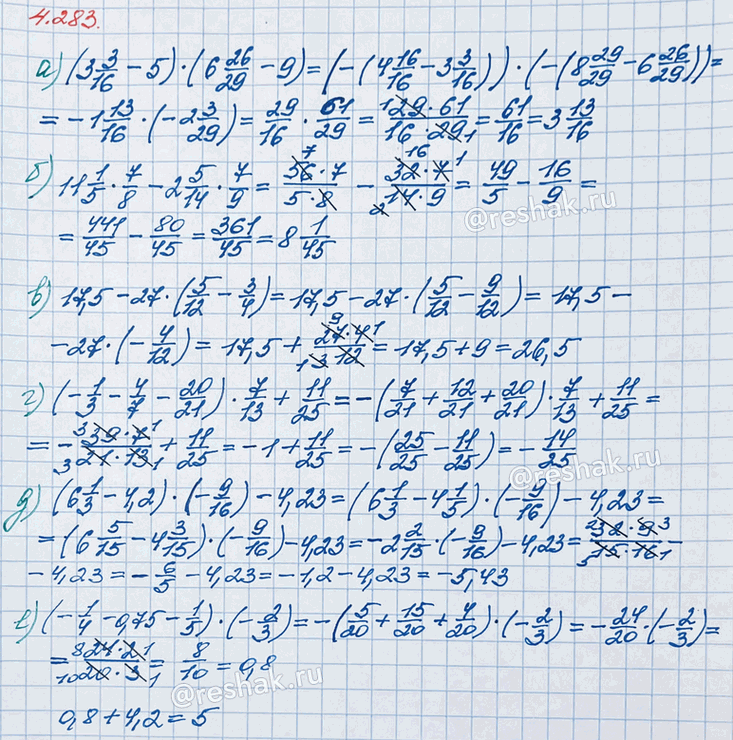 4.283.
а) (3 3/16 − 5) · (6 26/29 − 9) = (−(4 16/16 − 3 3/16)) · (−(8 29/29 − 6 26/29)) =
= −1 13/16 · (−2 3/29) = 29/16 · 61/29 = (1 29 · 61)/(16 · 29 1) = 61/16 = 3 13/16
б) 11 1/5 · 7/8 − 2 5/14 · 7/9 = (7 56 · 7)/(5 · 8) − (16 32 · 7 1)/(2 14 · 9) = 49/5 − 16/9 =
= 441/45 − 80/45 = 361/45 = 8 1/45
в) 17,5 − 27 · (5/12 − 3/4) = 17,5 − 27 · (5/12 − 9/12) = 17,5 −
− 27 · (−4/12) = 17,5 + (9 27 · 4 1)/(1 3 12) = 17,5 + 9 = 26,5
г) (−1/3 − 4/7 − 20/21) · 7/13 + 11/25 = −(7/21 + 12/21 + 20/21) · 7/13 + 11/25 =
= −(3 39 · 7 1)/(3 21 · 13 1) + 11/25 = −1 + 11/25 = −(25/25 − 11/25) = −14/25
д) (6 1/3 − 4,2) · (−9/16) − 4,23 = (6 1/3 − 4 1/5) · (−9/16) − 4,23 =
= (6 5/15 − 4 3/15) · (−9/16) − 4,23 = −2 2/15 · (−9/16) − 4,23 = (2 32 · 9 3)/(5 15 · 16 1) −
− 4,23 = −6/5 − 4,23 = −1,2 − 4,23 = −5,43
е) (−1/4 − 0,75 − 1/5) · (−2/3) = −(5/20 + 15/20 + 4/20) · (−2/3) = −24/20 · (−2/3) =
= (8 24 · 2 1)/(10 20 · 3 1) = 8/10 = 0,8
0,8 + 4,2 = 5
@reshak.ru
@reshak.ru
@reshak.ru